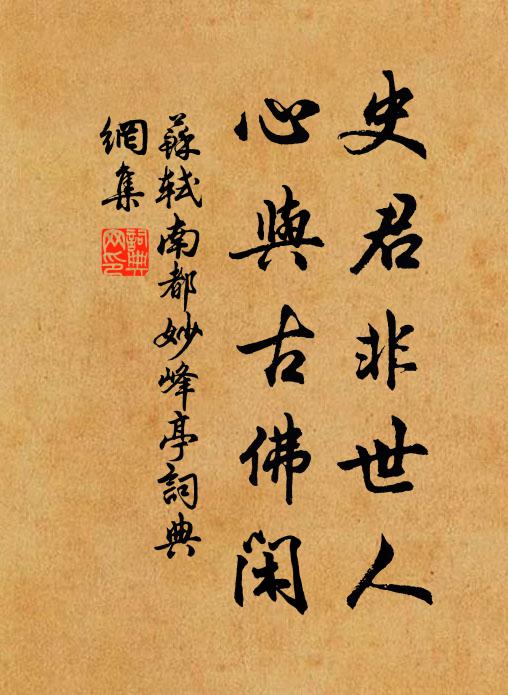 史君非世人
心與古佛閑
蘇軾南都妙峰亭詞典
網集
詞典網印